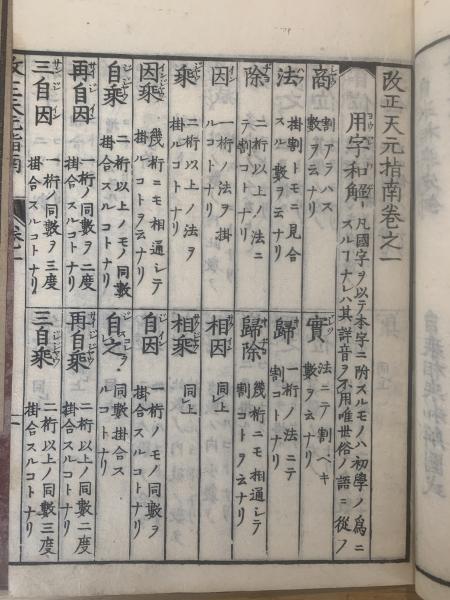 改正天元指南卷之一
用字和解 凡國字ヲ以テ本字ニ附スルモノハ初學ノ爲ニ
スルコナレハ其詳音ヲ不用唯世俗ノ語ニ從フ
商 割アラハス
數ヲ云ナリ
實 法ニテ割ヘキ
數ヲ云ナリ
法 掛割トモニ見合
スル數ヲ云ナリ
歸 一桁ノ法ニテ
割コトナリ
除 二桁以上ノ法ニ
テ割コトナリ
歸除 幾桁ニモ相通シテ
割コトヲ云ナリ
因 一桁ノ法ヲ掛
ルコトナリ
相因 同上
乘 二桁以上ノ法ヲ
掛ルコトナリ
相乘 同上
因乘 幾桁ニモ相通シテ
掛ルコトヲ云ナリ
自因 一桁ノモノ同數ヲ
掛合スルコトナリ
自乘 二桁以上ノモノ同數
掛合スルコトナリ
自之 同數掛合ス
ルコトヲ云ナリ
再自因 一桁ノ同數ヲ二度
掛合スルコトナリ
再自乘 二桁以上ノ同數二度
掛合スルコトナリ
三自因 一桁ノ同數ヲ三度
掛合スルコトナリ
三自乘 二桁以上ノ同數三度
掛合スルコトナリ
改正天元指南 卷一